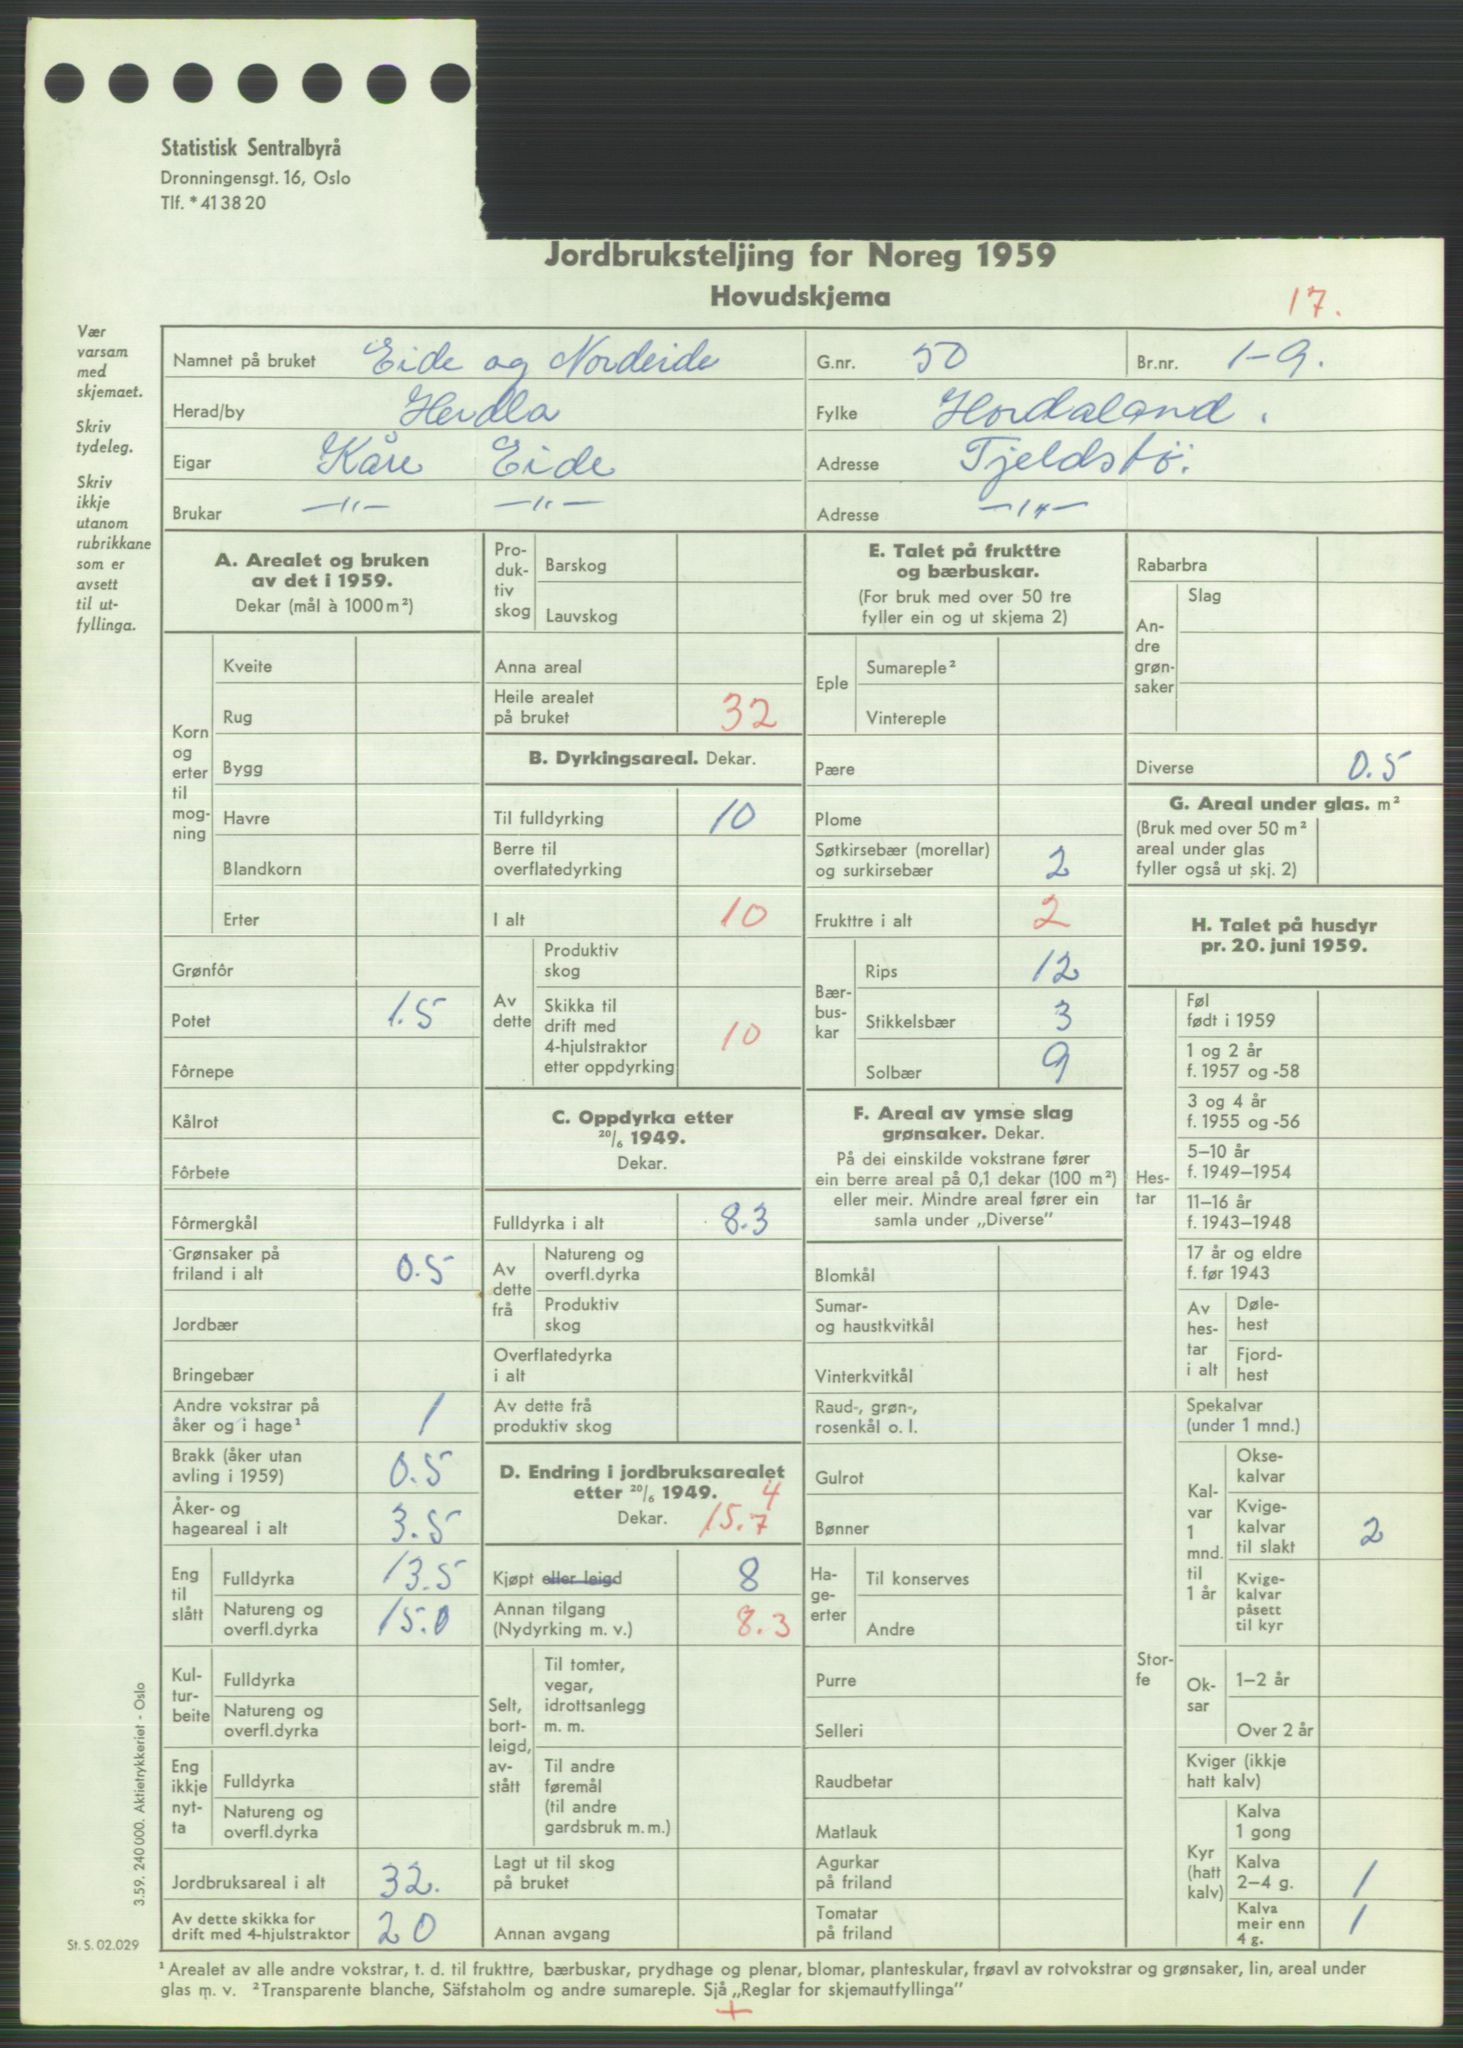 Statistisk Sentralbyrå
Dronningensgt. 16, Oslo
Tlf. * 41 38 20
Jordbruksteljing for Noreg 1959
Hovudskjema
17.
Vær
varsam
med
skjemaet.
Skriv
tydeleg.
Skriv
ikkje
utanom
rubrikkane
som er
avsett
til ut-
fyllinga.
Namnet på bruket Eide og Nordeide G.nr. 50 Br.nr. 1-9.
Herad/by Herdla Fylke Hordaland.
Eigar Kåre Eide Adresse Tjeldstø.
Brukar —"— —"— Adresse —"—
A. Arealet og bruken
av det i 1959.
Dekar (mål à 1000 m²)
Korn
og
erter
til
mog-
ning
Kveite
Rug
Bygg
Havre
Blandkorn
Erter
Grønfôr
Potet 1.5
Fôrnepe
Kålrot
Fôrbete
Fôrmergkål
Grønsaker på
friland i alt 0.5
Jordbær
Bringebær
Andre vokstrar på
åker og i hage¹ 1
Brakk (åker utan
avling i 1959) 0.5
Åker- og
hageareal i alt 3.5
Eng
til
slått
Fulldyrka 13.5
Natureng og
overfl.dyrka 15.0
Kul-
tur-
beite
Fulldyrka
Natureng og
overfl.dyrka
Eng
ikkje
nyt-
ta
Fulldyrka
Natureng og
overfl.dyrka
Jordbruksareal i alt 32.
Av dette skikka for
drift med 4-hjulstraktor 20
Pro-
duk-
tiv
skog
Barskog
Lauvskog
Anna areal
Heile arealet
på bruket 32
B. Dyrkingsareal. Dekar.
Til fulldyrking 10
Berre til
overflatedyrking
I alt 10
Av
dette
Produktiv
skog
Skikka til
drift med
4-hjulstraktor
etter oppdyrking 10
C. Oppdyrka etter
20/6 1949.
Dekar.
Fulldyrka i alt 8.3
Av
dette
frå
Natureng og
overfl.dyrka
Produktiv
skog
Overflatedyrka
i alt
Av dette frå
produktiv skog
D. Endring i jordbruksarealet
etter 20/6 1949. 4
Dekar. 15.7
Kjøpt eller leigd 8
Annan tilgang
(Nydyrking m. v.) 8.3
Selt,
bort-
leigd,
av-
stått
Til tomter,
vegar,
idrottsanlegg
m. m.
Til andre
føremål
(til andre
gardsbruk m. m.)
Lagt ut til skog
på bruket
Annan avgang
E. Talet på frukttre
og bærbuskar.
(For bruk med over 50 tre
fyller ein og ut skjema 2)
Eple
Sumareple²
Vintereple
Pære
Plome
Søtkirsebær (morellar)
og surkirsebær 2
Frukttre i alt 2
Bær-
bus-
kar
Rips 12
Stikkelsbær 3
Solbær 9
F. Areal av ymse slag
grønsaker. Dekar.
På dei einskilde vokstrane fører
ein berre areal på 0,1 dekar (100 m²)
eller meir. Mindre areal fører ein
samla under „Diverse”
Blomkål
Sumar-
og haustkvitkål
Vinterkvitkål
Raud-, grøn-,
rosenkål o. l.
Gulrot
Bønner
Ha-
ge-
erter
Til konserves
Andre
Purre
Selleri
Raudbetar
Matlauk
Agurkar
på friland
Tomatar
på friland
Rabarbra
An-
dre
grøn-
saker
Slag
Diverse 0.5
G. Areal under glas. m²
(Bruk med over 50 m²
areal under glas
fyller også ut skj. 2)
H. Talet på husdyr
pr. 20. juni 1959.
Hes-
tar
Føl
født i 1959
1 og 2 år
f. 1957 og -58
3 og 4 år
f. 1955 og -56
5–10 år
f. 1949–1954
11–16 år
f. 1943–1948
17 år og eldre
f. før 1943
Av
hes-
tar
i alt
Døle-
hest
Fjord-
hest
Stor-
fe
Spekalvar
(under 1 mnd.)
Kal-
var
1
mnd.
til
1 år
Okse-
kalvar
Kvige-
kalvar
til slakt 2
Kvige-
kalvar
påsett
til kyr
Ok-
sar
1–2 år
Over 2 år
Kviger (ikkje
hatt kalv)
Kyr
(hatt
kalv)
Kalva
1 gong
Kalva
2–4 g. 1
Kalva
meir enn
4 g. 1
3.59. 240 000. Aktietrykkeriet - Oslo
St. S. 02.029
¹ Arealet av alle andre vokstrar, t. d. til frukttre, bærbuskar, prydhage og plenar, blomar, planteskular, frøavl av rotvokstrar og grønsaker, lin, areal under
glas m. v. ² Transparente blanche, Säfstaholm og andre sumareple. Sjå „Reglar for skjemautfyllinga”
+